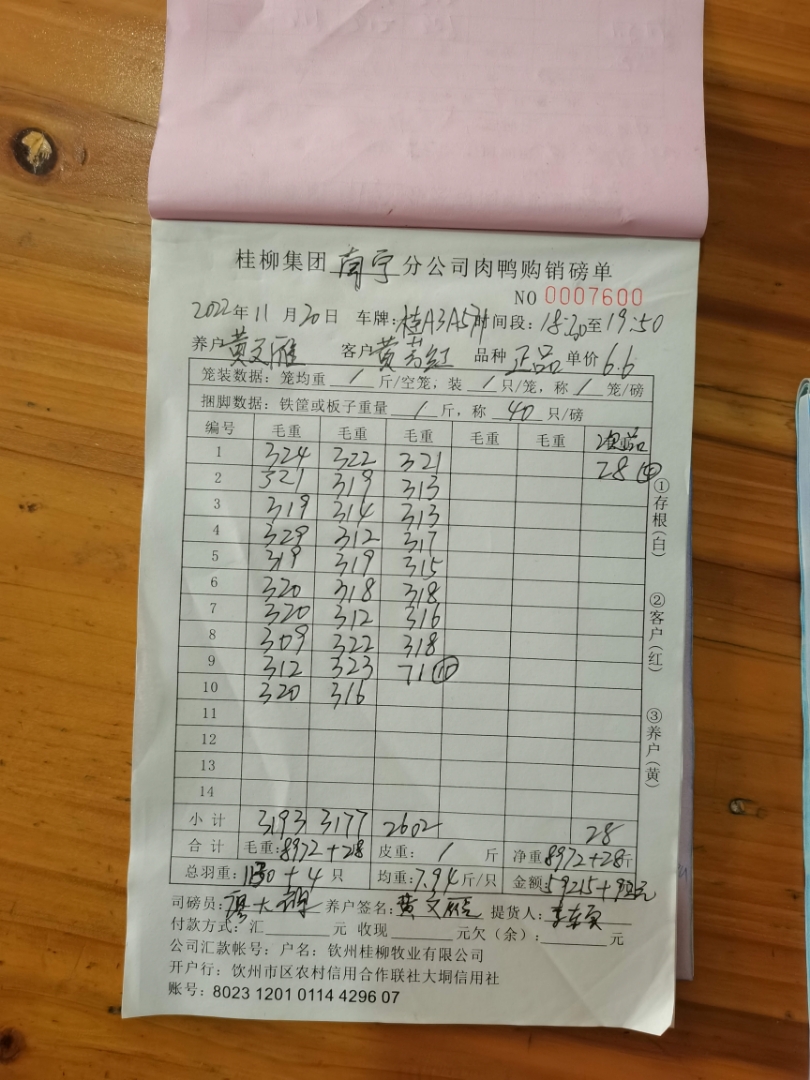 桂柳集团 南宁 分公司肉鸭购销磅单
NO 0007600
2022年11月20日 车牌:桂A3A57 时间段:18:20至19:50
养户 黄文雁 客户 黄 红 品种 正品 单价 6.6
笼装数据:笼均重 / 斤/空笼,装 / 只/笼,称 / 笼/磅
捆脚数据:铁筐或板子重量 / 斤,称 40 只/磅
编号 毛重 毛重 毛重 毛重 毛重 次品
1 324 322 321 28 ④
2 321 319 313
3 319 314 313
4 329 312 317
5 319 319 315
6 320 318 318
7 320 312 316
8 309 322 318
9 312 323 71 ⑩
10 320 316
11
12
13
14
小计 3193 3177 2602 28
合计 毛重:8972+28 皮重: / 斤 净重 8972+28斤
总羽重:1130+4 只 均重:7.94斤/只 金额:59215+92元
司磅员: 养户签名:黄文雁 提货人:
付款方式:汇 元 收现 元欠(余): 元
公司汇款帐号:户名:钦州桂柳牧业有限公司
开户行:钦州市区农村信用合作联社大垌信用社
账号:8023 1201 0114 4296 07
①存根(白)
②客户(红)
③养户(黄)